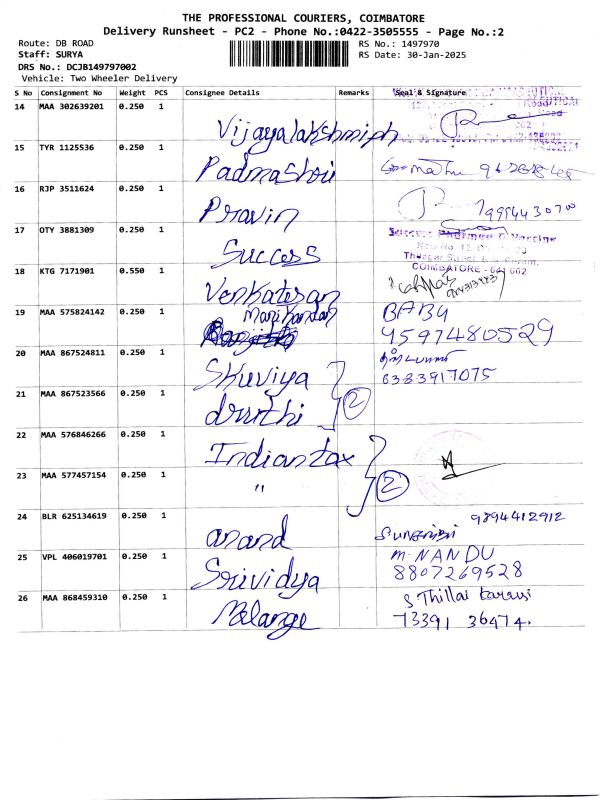 THE PROFESSIONAL COURIERS, COIMBATORE
Delivery Runsheet - PC2 - Phone No.:0422-3505555 - Page No.:2
Route: DB ROAD
Staff: SURYA
DRS No.: DCJB149797002
Vehicle: Two Wheeler Delivery
RS No.: 1497970
RS Date: 30-Jan-2025
S No Consignment No Weight PCS Consignee Details Remarks Seal & Signature
14 MAA 302639201 0.250 1 Vijayalakshmiph
15 TYR 1125536 0.250 1 Padmashrii
16 RJP 3511624 0.250 1 Pravin
17 OTY 3881309 0.250 1 Success
COIMBATORE - 641 002
18 KTG 7171901 0.550 1 Venkatesan
19 MAA 575824142 0.250 1 Manikandan BABU
9597480529
20 MAA 867524811 0.250 1 Skuviya
6383917075
21 MAA 867523566 0.250 1 druthi 2
22 MAA 576846266 0.250 1 Indian tax
23 MAA 577457154 0.250 1 " 2
24 BLR 625134619 0.250 1 anand 9894412912
25 VPL 406019701 0.250 1 Srividya M. NANDU
8807269528
26 MAA 868459310 0.250 1 Melange S Thillai
73391 36474.